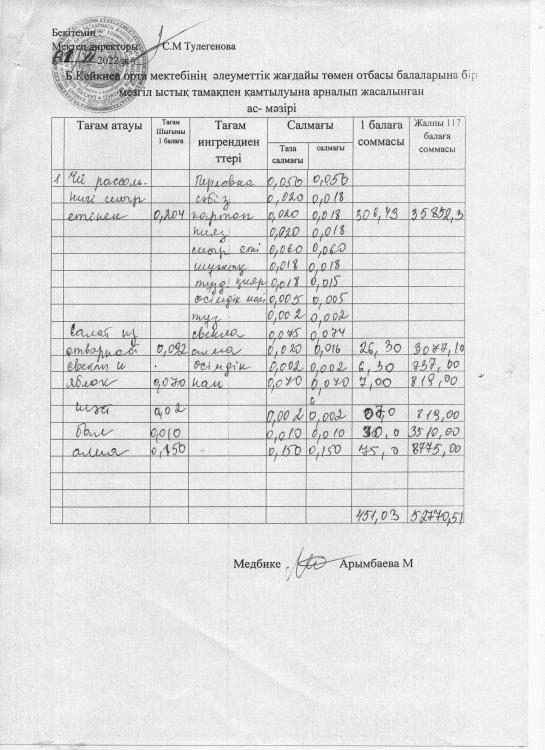 Бекітемін
Мектеп директоры: С.М Тулегенова
2022 ж
Б.Кейкиев орта мектебінің әлеуметтік жағдайы төмен отбасы балаларына бір
мезгіл ыстық тамақпен қамтылуына арналып жасалынған
ас- мәзірі
Тағам атауы Тағам Шығымы 1 балаға Тағам ингредиенттері Салмағы 1 балаға соммасы Жалпы 117 балаға соммасы
Таза салмағы салмағы
1 Щи рассоль- Перловка 0,050 0,050
нигі сиыр сәбіз 0,020 0,018
етінен 0,204 картоп 0,020 0,018 306,43 35852,3
пияз 0,020 0,018
сиыр еті 0,060 0,060
шұжық 0,018 0,018
тұзд. қияр 0,018 0,015
өсімдік май 0,005 0,005
тұз 0,002 0,002
салат из свекла 0,075 0,074
отварной 0,092 алма 0,020 0,016 26,30 3077,10
свеклы и өсімдік 0,002 0,002 6,30 737,00
яблок 0,070 нан 0,070 0,070 7,00 819,00
шәй 0,02 0,002 0,002 819,00
бал 0,010 0,010 0,010 30,0 3510,00
алма 0,150 0,150 0,150 75,0 8775,00
451,03 52770,51
Медбике Арымбаева М